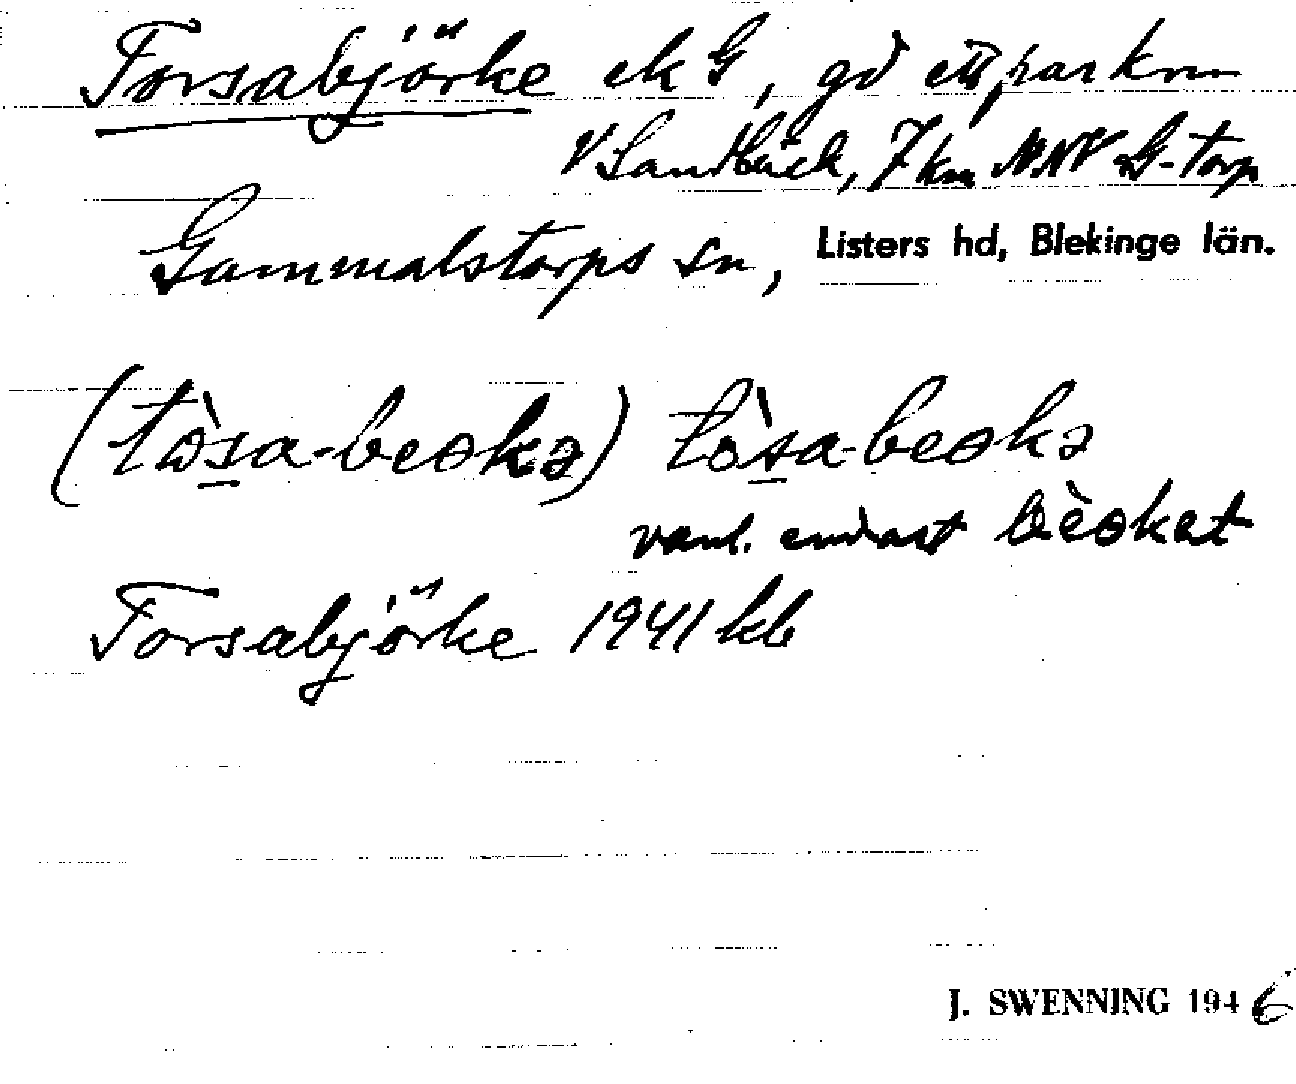 Torsabjörke ek G, gd ett par km
V Sandbäck, 7 km NNV G-torp
Gammalstorps sn, Listers hd, Blekinge län.
(tòsa-beokə) tòsa-beokə
vanl. endast bèokət
Torsabjörke 1941 kb
J. SWENNING 1946